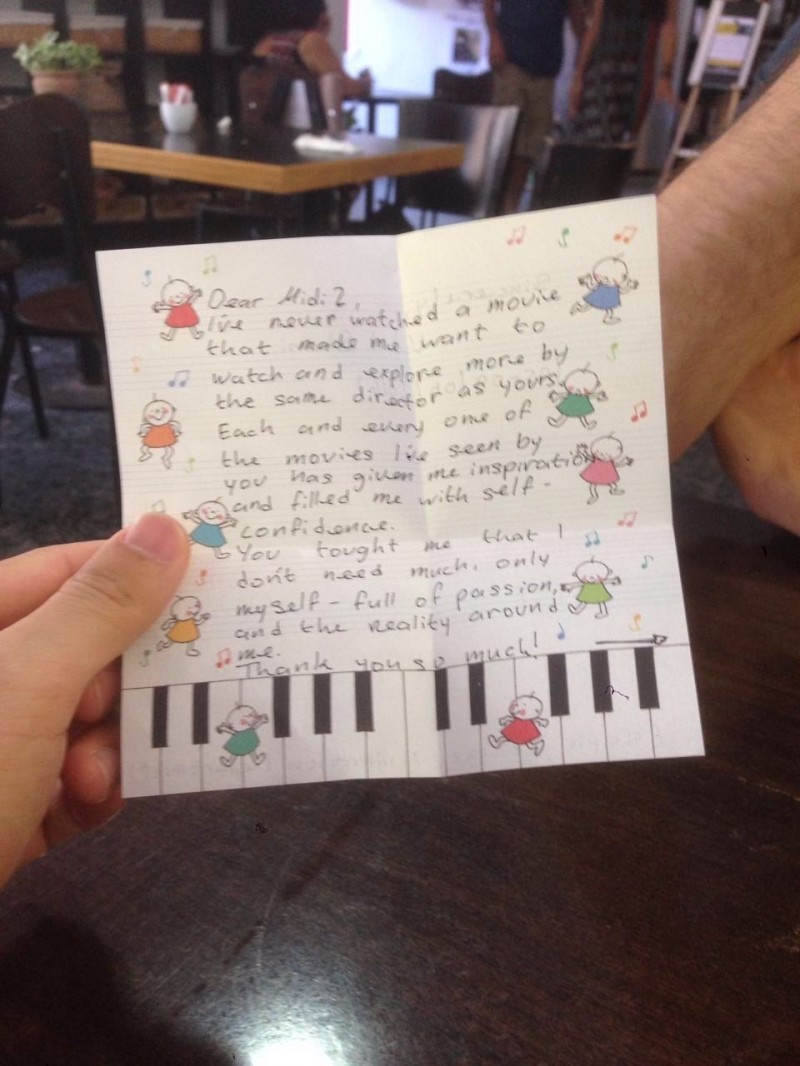 Dear Midi Z,
I've never watched a movie
that made me want to
watch and explore more by
the same director as yours.
Each and every one of
the movies I've seen by
you has given me inspiration
and filled me with self-
confidence.
You tought me that I
don't need much, only
myself - full of passion,
and the reality around
me.
Thank you so much!